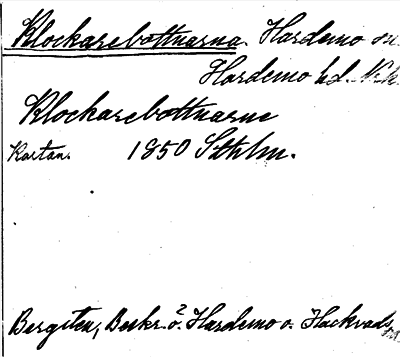 Klockarebottnarna. Hardemo sn.
Hardemo hd. Nrk.
Klockarebottnarne
Kartan. 1850 Sthlm.
Bergsten, Beskr. ö. Hardemo o. Hackvads